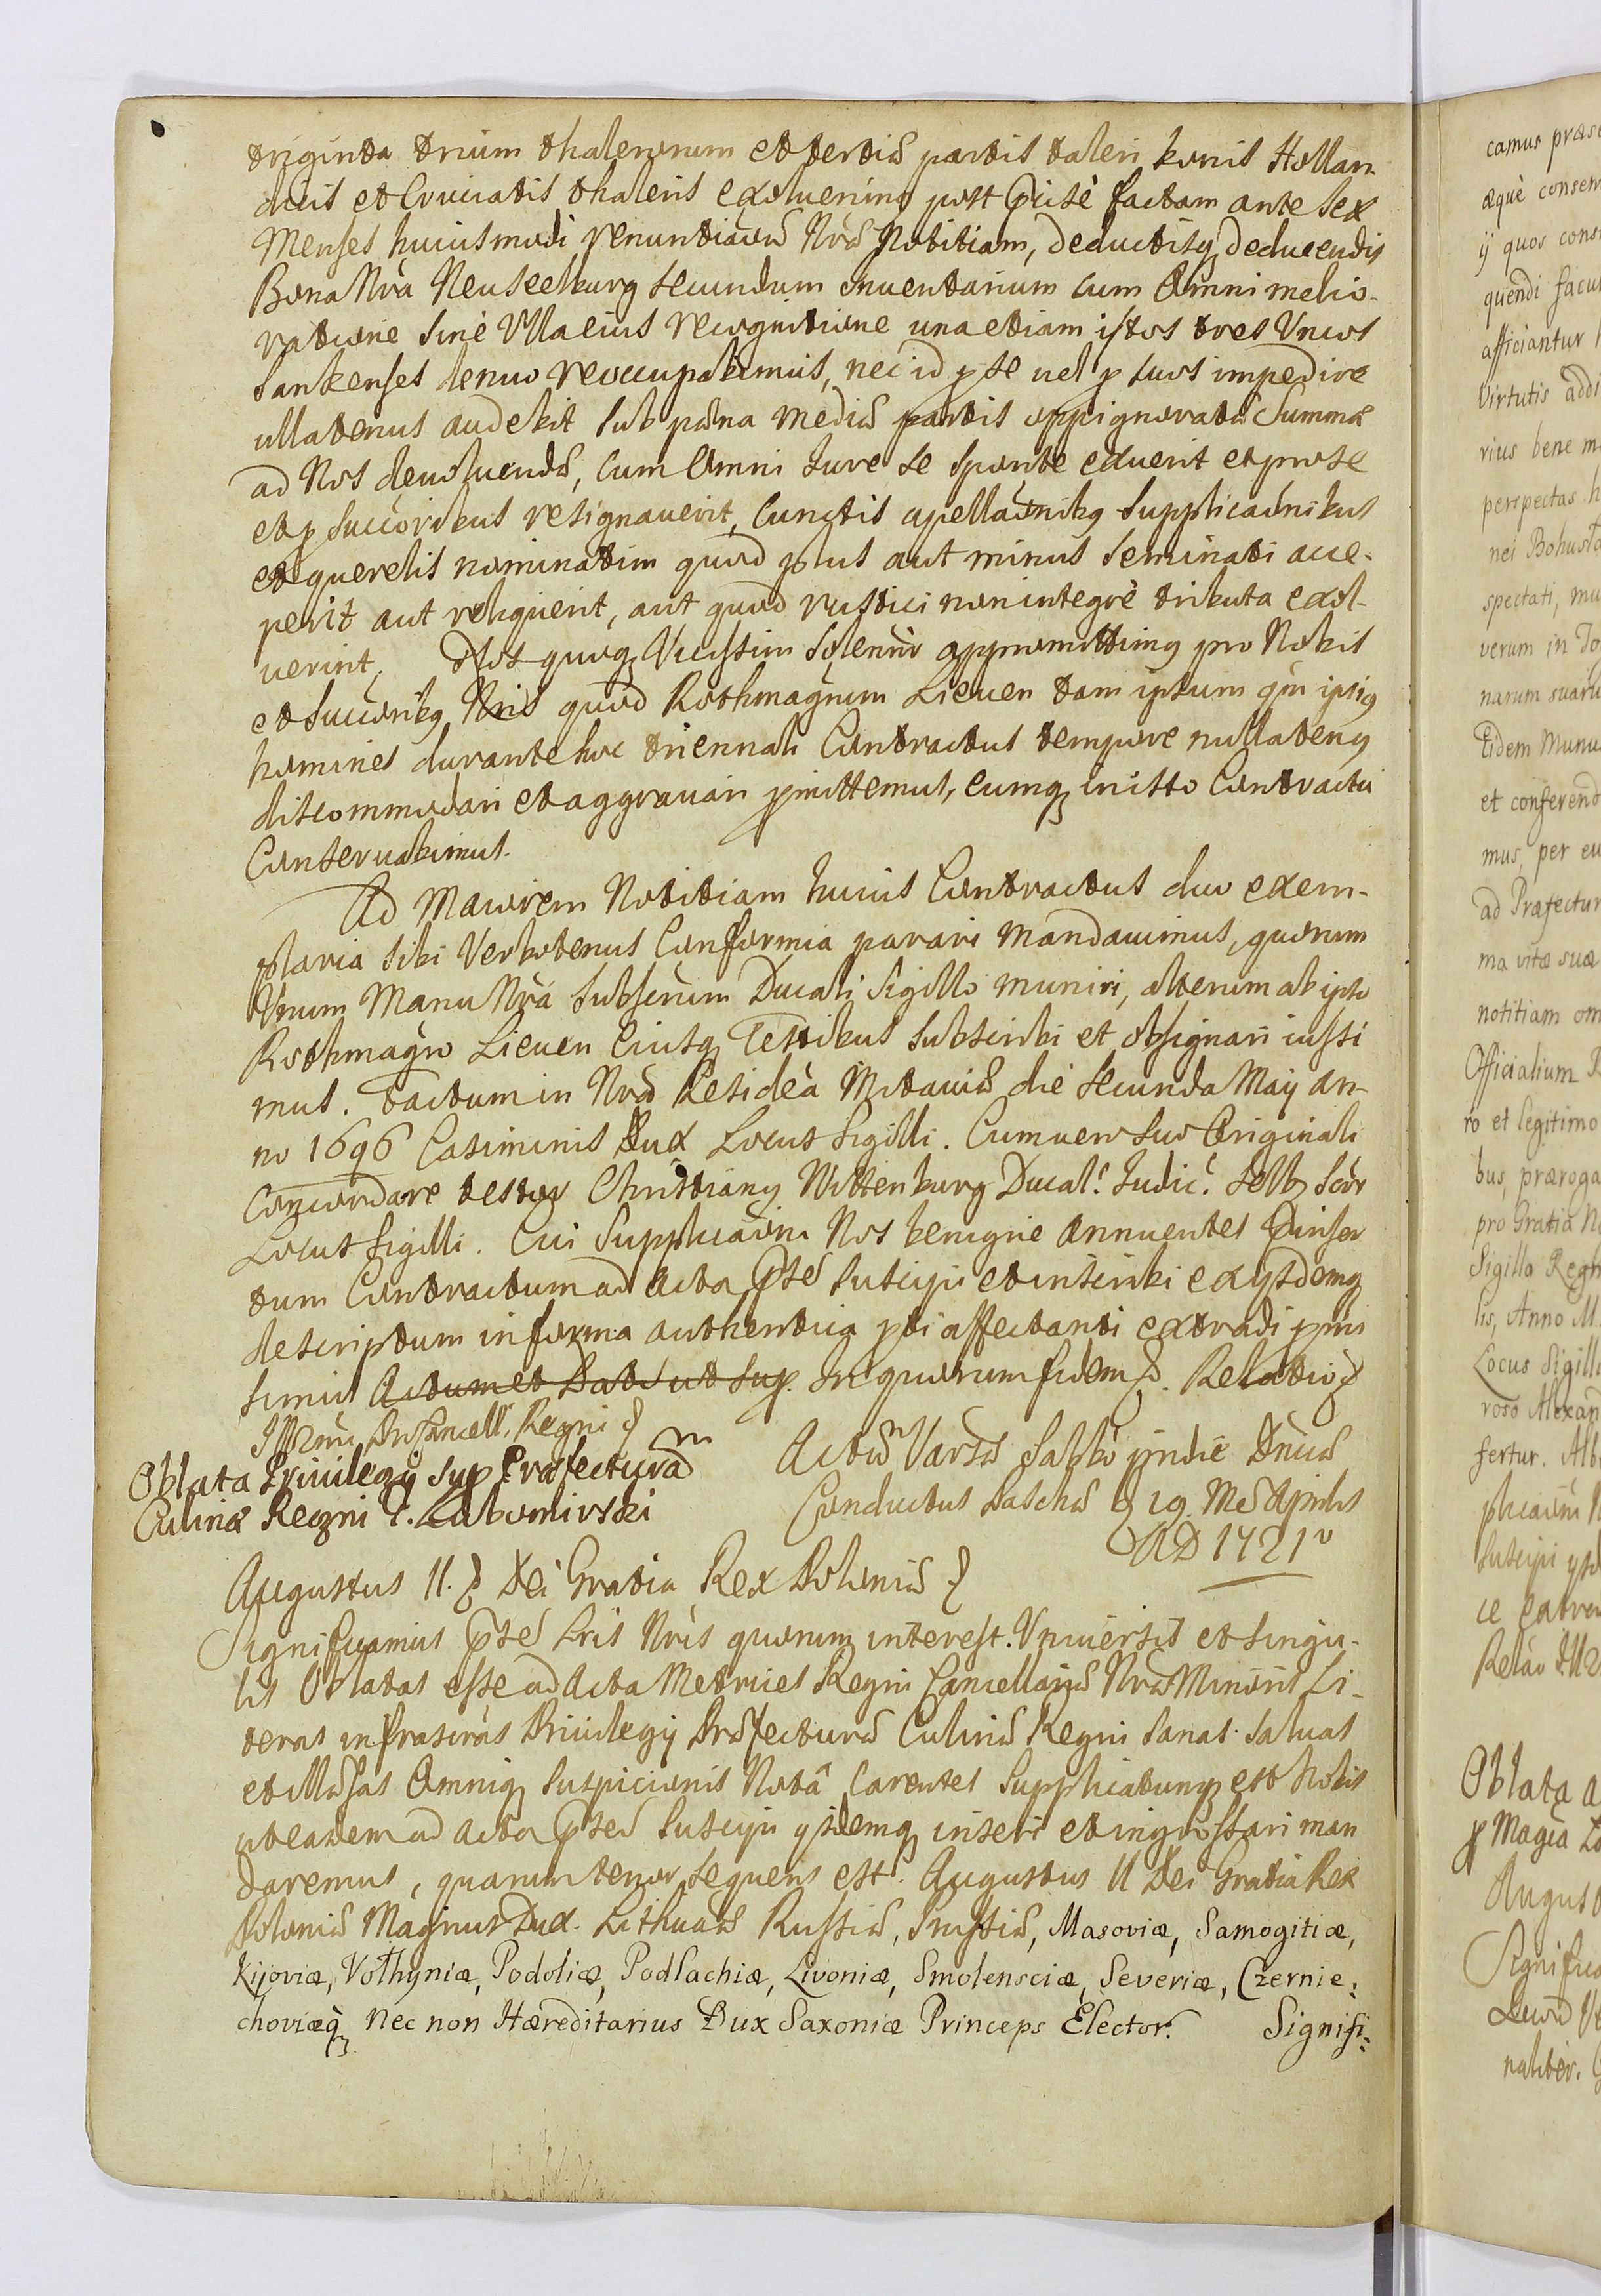 triginta trium thalerorum et tertiæ partis taleri bonis Hollan-
dicis et Cruciatis thaleris exolverimꝰ post præcisè factam ante sex
Menses huiusmodi renuntiaõis Nræ Notitiam, deductisq deducendis
Bona Nra Neuseelburg secundum inventarium cum omni melio-
ratione sine Ulla eius recognitione una etiam istos tres Uncos
Sankenses denuo reoccupabimus, nec id p se vel p suos impedire
ullatenus audebit sub pæna mediæ partis oppignoratæ Summæ
ad Nos devoluendæ, cum omni Jure se sponte exuerit et pro se
et p succõribus resignaverit, cunctis apellaõnibꝫ supplicaõnibus
et querelis nominatim quod plus aut minus seminati acce-
perit aut reliquerit, aut quod rustici non integrè tributa exol-
verint. Nos quoqꝫ Vicissim solenir appromittimꝰ pro Nobis
et succõribꝫ Nris quod Rothmagrum Lieven tam ipsum qm ipsiꝰ
homines durante hoc triennali Contractus tempore nullatenꝰ
discommodari et aggravari pmittemus, eumqꝫ in isto Contractu
Conservabimus.
Ad Maiorem Notitiam huius Contractus duo exem-
plaria sibi Verbotenus Conformia parari mandavimus, quorum
Unum Manu Nra subscrium Ducali Sigillo muniri, alterum ab ipso
Rothmagro Lieven Eiusq Testibus subscribi et obsignari iussi
mus. Factum in Nra Residẽa Mitaviæ die secunda Maij an-
no 1696 Casimirus Dux Locus Sigilli. Cum vero suo Originali
Concordare testor Christianꝰ Wittenburg Ducal. Judic.
Locus Sigilli. Cui Supplicaõni Nos benigne annuentes præinser
tum Contractum ad Acta Pntia suscipi et inscribi ex ijsdemqꝫ
descriptum in forma authentica pti affectanti extradi pmi
simus Actum et Dat ut sup. In quorum fidem &. Relatio &
Illrmi Procancell. Regni &
Oblata Privilegij sup Præfecturam
Culinæ Regni G. Lubomirski
Actum Varsæ Sabbo pridie Dnicæ
Conductus Paschæ d 19. Mẽs Aprilis
AD 1721º
Augustus II. & Dei Gratia Rex Poloniæ &
Significamus Pntib Lris Nris quorum interest. Universis et singu-
lis Oblatas esse ad Acta Metrices Regni Cancellariæ Nræ Minoris Li-
teras infrascrᵃs Privilegij Præfecturæ Culinæ Regni sanas salvas
et illæsas Omniqꝫ suspicionis Notâ carentes Supplicatumqꝫ est Nobis
ut easdem ad acta Pntia suscipi ijsdemqꝫ inseri et ingrossari man
daremus, quarum tenor sequens est. Augustus II Dei Gratia Rex
Poloniæ Magnus Dux Lithuaæ Russiæ, Prussiæ, Masoviæ, Samogitiæ,
Kijoviæ, Volhyniæ, Podoliæ, Podlachiæ, Livoniæ, Smolensciæ, Severiæ, Czernie:
choviæqꝫ Nec non Hæreditarius Dux Saxoniæ Princeps Elector. Signifi:
camus præse
æquè conser
ij quos cons
quendi facu
afficiantur h
Virtutis addi
rius bene m
perspectas h
nei Bohusla
spectati, mu
verum in To
narum suaru
Eidem Munu
et conferend
mus, per eu
ad Præfectur
ma vitæ suæ
notitiam om
Officialium R
ro et legitimo
bus, præroga
pro Gratiâ N
Sigillo Regn
lis, Anno M.
Locus Sigilli
roso Alexan
fertur. Alb
plicaõni N
suscipi ijsd
ce extra
Relão Ill
Oblata a
p Magca Lo
August
Signific
Quod V
naliter. C